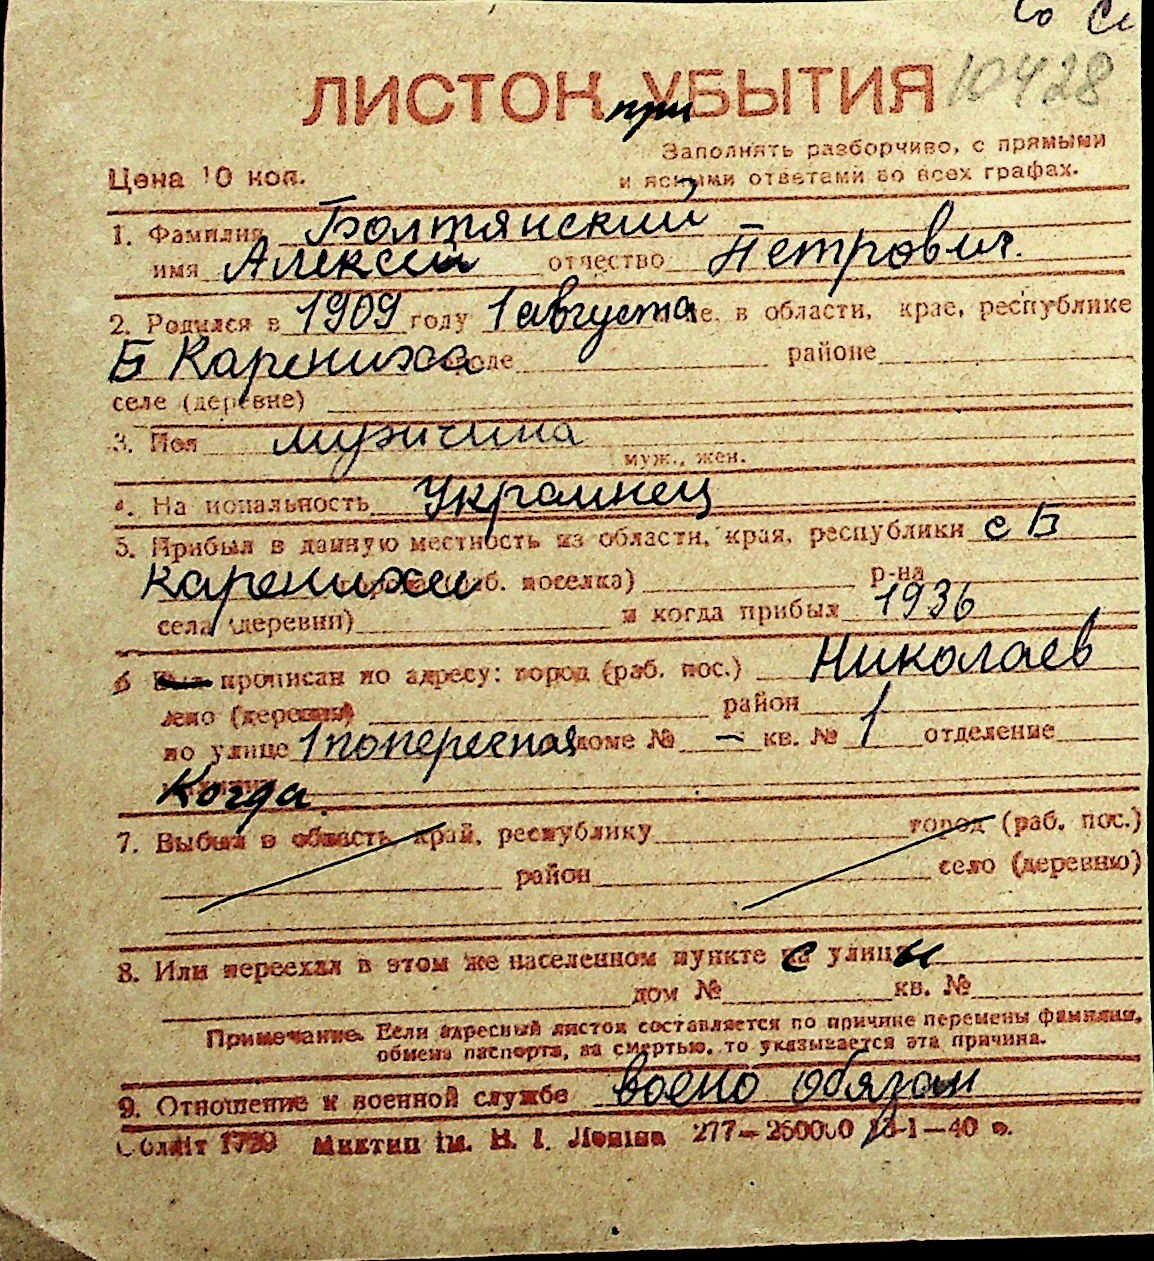 10428
ЛИСТОК при УБЫТИЯ
Заполнять разборчиво, с прямыми
Цена 10 коп.
и ясными ответами во всех графах.
1. Фамилия Болтянский
имя Алексей отчество Петрович.
2. Родился в 1909 году 1 августа в области, крае, республике
Б Карениха городе районе
селе (деревне)
3. Пол мужчина
муж., жен.
4. Национальность Украинец
5. Прибыл в данную местность из области, края, республики с Б
Каренихи раб. поселка) р-на
села (деревни) и когда прибыл 1936
6 Был прописан по адресу: город (раб. пос.) Николаев
село (деревня) район
по улице 1 поперечная доме № – кв. № 1 отделение
Когда
7. Выбыл в область край, республику город (раб. пос.)
район село (деревню)
8. Или переехал в этом же населенном пункте с улицы
дом № кв. №
Примечание. Если адресный листок составляется по причине перемены фамилии,
обмена паспорта, за смертью, то указывается эта причина.
9. Отношение к военной службе воено обязан
Облліт 1790 Миктип ім. В. І. Леніна 277—260000 13-1—40 р.